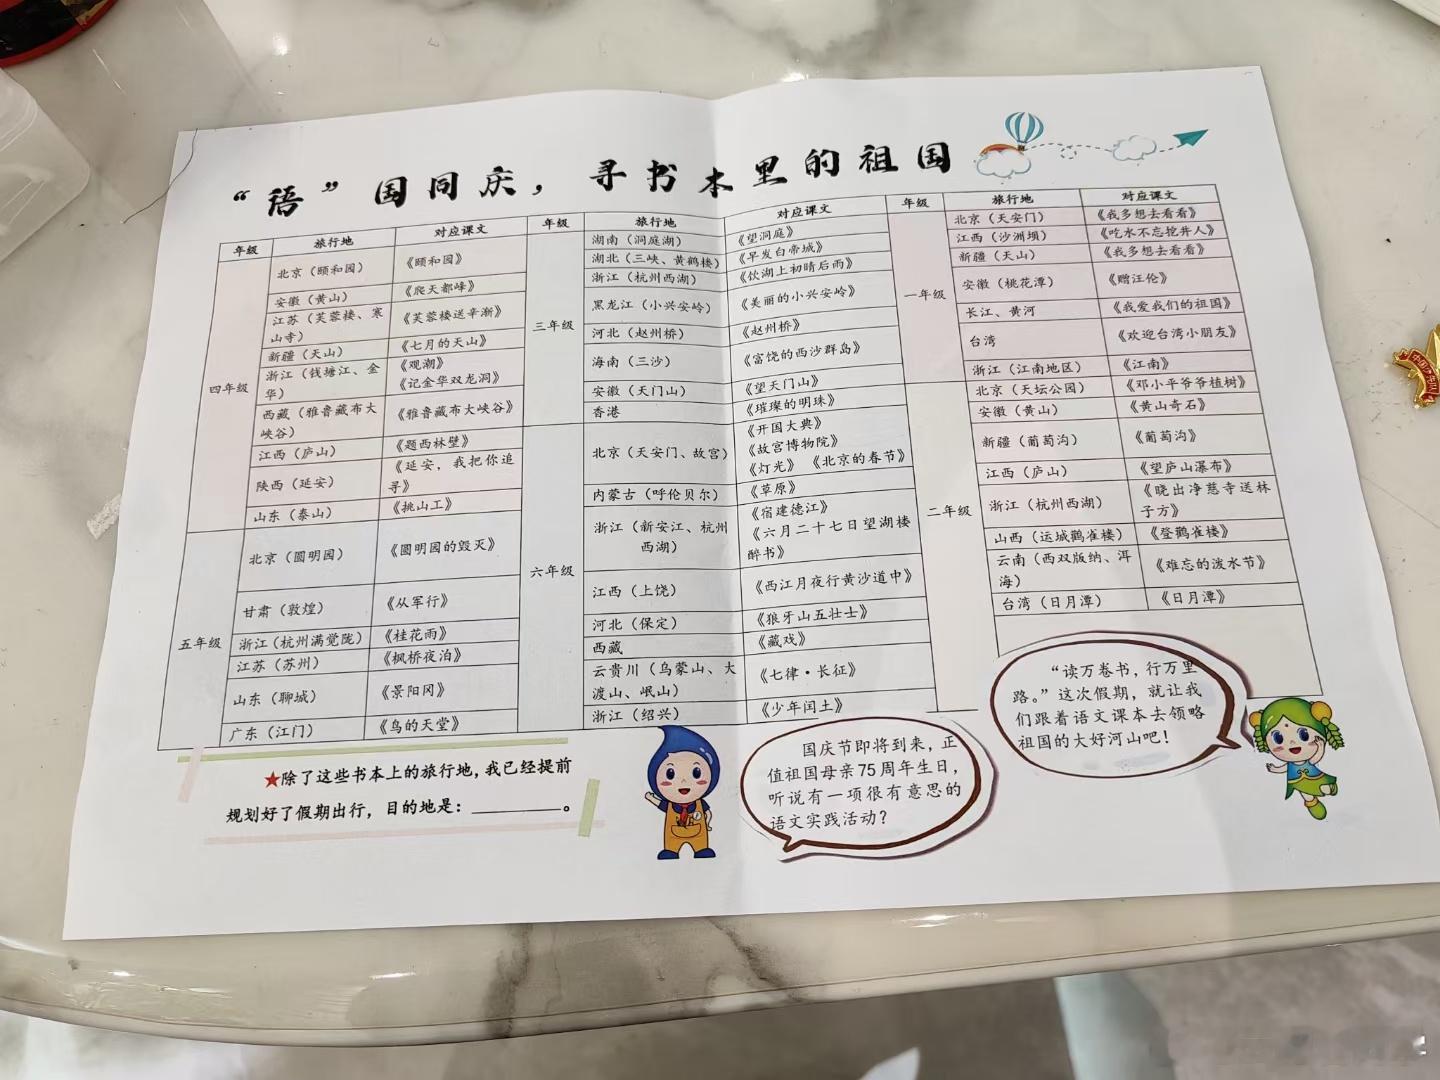 “语”国同庆，寻书本里的祖国
年级 旅行地 对应课文
四年级
北京（颐和园） 《颐和园》
安徽（黄山） 《爬天都峰》
江苏（芙蓉楼、寒 《芙蓉楼送辛渐》
山寺）
新疆（天山） 《七月的天山》
浙江（钱塘江、金 《观潮》
华） 《记金华双龙洞》
西藏（雅鲁藏布大 《雅鲁藏布大峡谷》
峡谷）
江西（庐山） 《题西林壁》
陕西（延安） 《延安，我把你追
寻》
山东（泰山） 《挑山工》
五年级
北京（圆明园） 《圆明园的毁灭》
甘肃（敦煌） 《从军行》
浙江（杭州满觉陇） 《桂花雨》
江苏（苏州） 《枫桥夜泊》
山东（聊城） 《景阳冈》
广东（江门） 《鸟的天堂》
年级 旅行地 对应课文
三年级
湖南（洞庭湖） 《望洞庭》
湖北（三峡、黄鹤楼） 《早发白帝城》
浙江（杭州西湖） 《饮湖上初晴后雨》
黑龙江（小兴安岭） 《美丽的小兴安岭》
河北（赵州桥） 《赵州桥》
海南（三沙） 《富饶的西沙群岛》
安徽（天门山） 《望天门山》
香港 《璀璨的明珠》
六年级
北京（天安门、故宫） 《开国大典》
《故宫博物院》
《灯光》 《北京的春节》
内蒙古（呼伦贝尔） 《草原》
浙江（新安江、杭州 《宿建德江》
西湖） 《六月二十七日望湖楼
醉书》
江西（上饶） 《西江月夜行黄沙道中》
河北（保定） 《狼牙山五壮士》
西藏 《藏戏》
云贵川（乌蒙山、大 《七律·长征》
渡山、岷山）
浙江（绍兴） 《少年闰土》
年级 旅行地 对应课文
一年级
北京（天安门） 《我多想去看看》
江西（沙洲坝） 《吃水不忘挖井人》
新疆（天山） 《我多想去看看》
安徽（桃花潭） 《赠汪伦》
长江、黄河 《我爱我们的祖国》
台湾 《欢迎台湾小朋友》
浙江（江南地区） 《江南》
二年级
北京（天坛公园） 《邓小平爷爷植树》
安徽（黄山） 《黄山奇石》
新疆（葡萄沟） 《葡萄沟》
江西（庐山） 《望庐山瀑布》
浙江（杭州西湖） 《晓出净慈寺送林
子方》
山西（运城鹳雀楼） 《登鹳雀楼》
云南（西双版纳、洱 《难忘的泼水节》
海）
台湾（日月潭） 《日月潭》
★除了这些书本上的旅行地，我已经提前
规划好了假期出行，目的地是：________。
国庆节即将到来，正
值祖国母亲75周年生日，
听说有一项很有意思的
语文实践活动？
“读万卷书，行万里
路。”这次假期，就让我
们跟着语文课本去领略
祖国的大好河山吧！